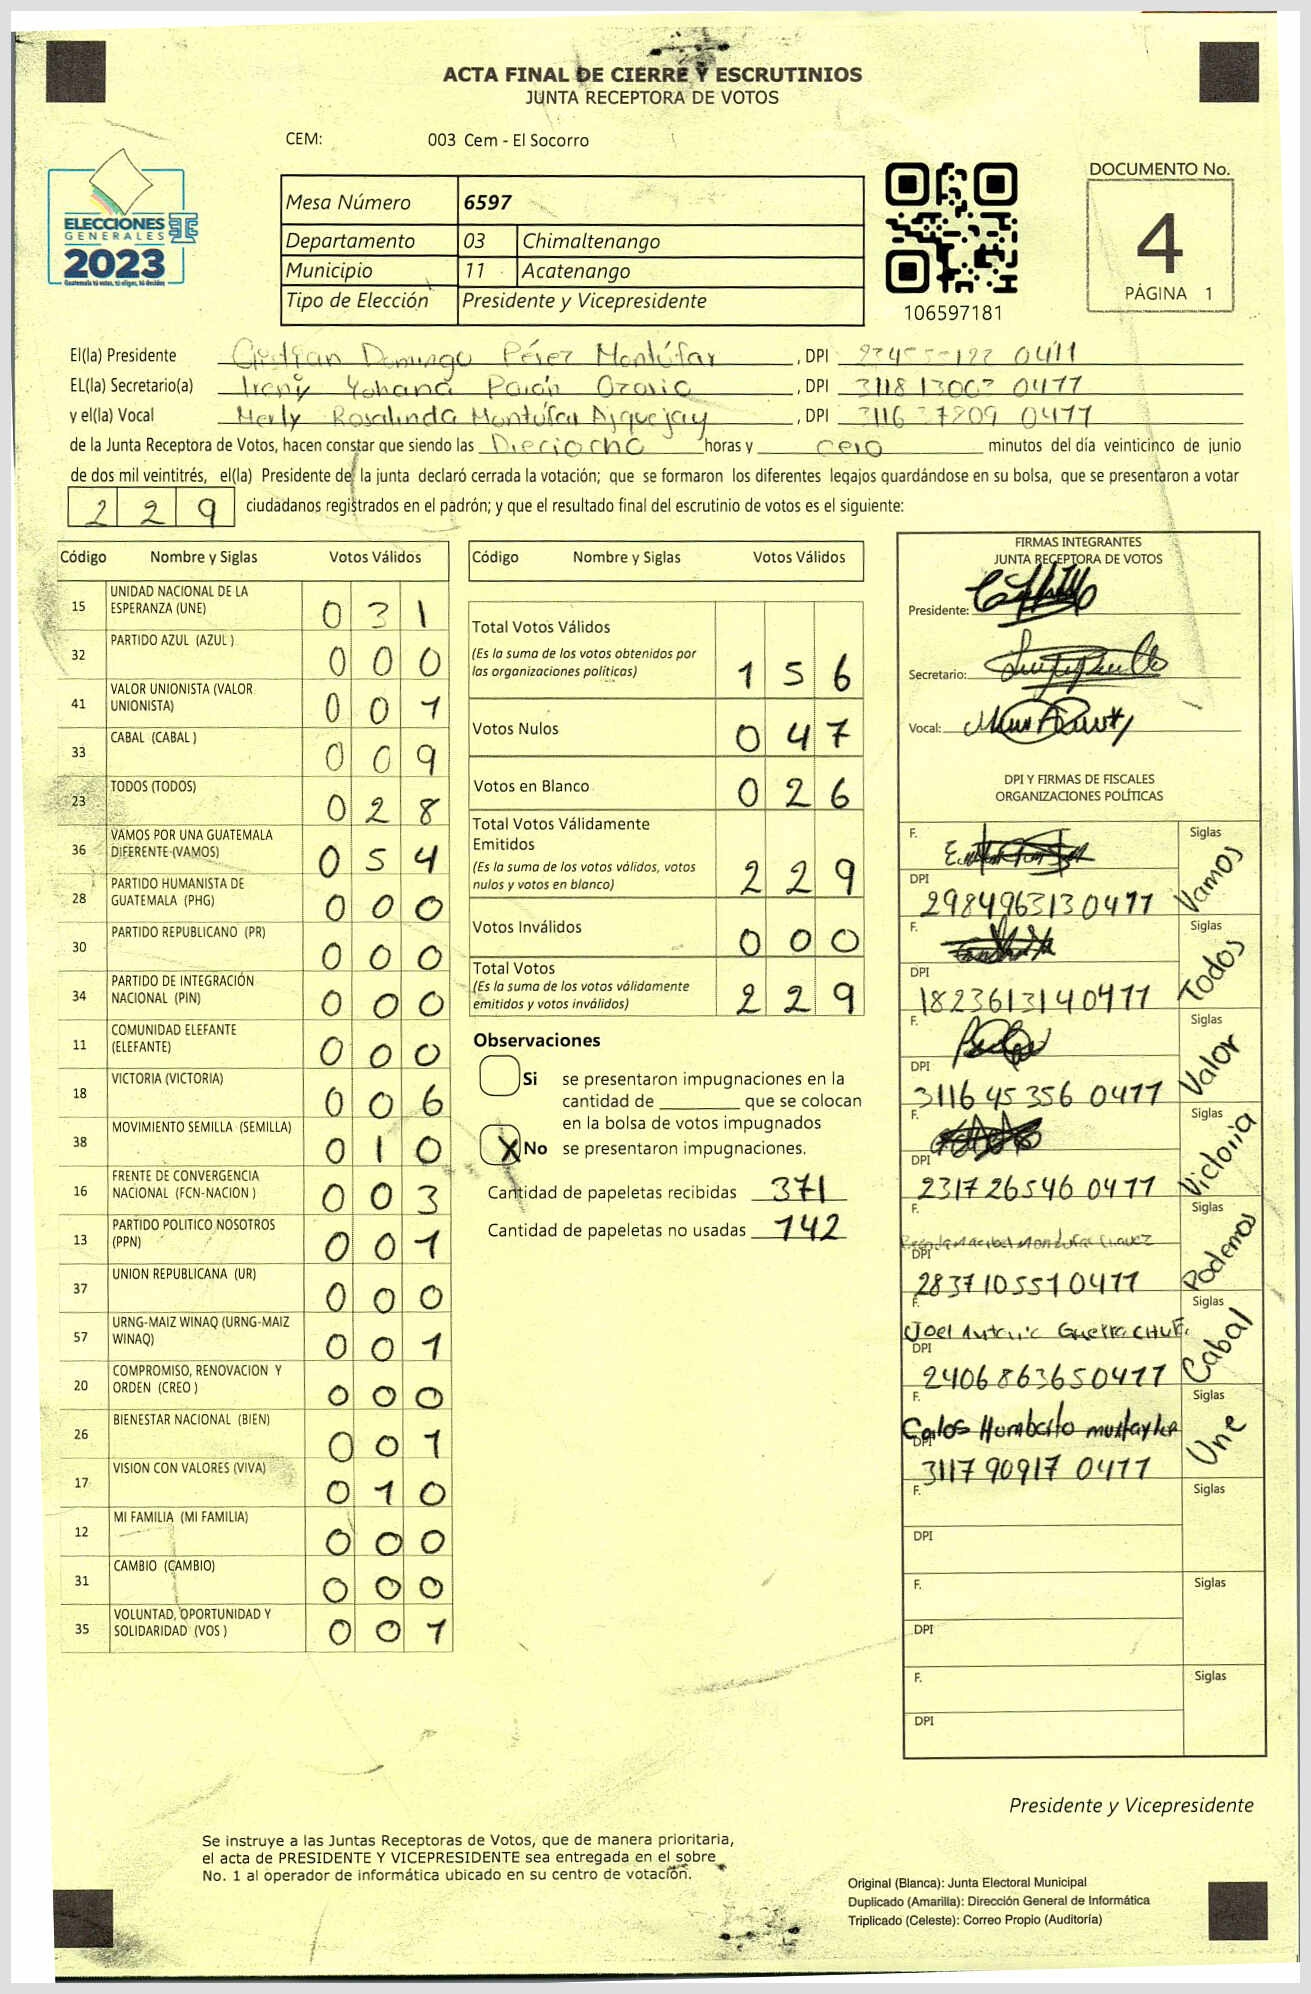 ACTA FINAL DE CIERRE Y ESCRUTINIOS
JUNTA RECEPTORA DE VOTOS
CEM: 003 Cem - El Socorro
ELECCIONES
GENERALES
2023
Guatemala tú votas, tú eliges, tú decides
Mesa Número 6597
Departamento 03 Chimaltenango
Municipio 11 Acatenango
Tipo de Elección Presidente y Vicepresidente
106597181
DOCUMENTO No.
4
PÁGINA 1
El(la) Presidente Domingo Pérez Montúfar , DPI 0411
EL(la) Secretario(a) Yohana , DPI 31181 0477
y el(la) Vocal Merly Rosalinda Montúfar Ajquejay , DPI 311637809 0477
de la Junta Receptora de Votos, hacen constar que siendo las Dieciocho horas y cero minutos del día veinticinco de junio
de dos mil veintitrés, el(la) Presidente de la junta declaró cerrada la votación; que se formaron los diferentes legajos guardándose en su bolsa, que se presentaron a votar
2 2 9 ciudadanos registrados en el padrón; y que el resultado final del escrutinio de votos es el siguiente:
Código Nombre y Siglas Votos Válidos
15 UNIDAD NACIONAL DE LA ESPERANZA (UNE) 0 3 1
32 PARTIDO AZUL (AZUL ) 0 0 0
41 VALOR UNIONISTA (VALOR UNIONISTA) 0 0 1
33 CABAL (CABAL ) 0 0 9
23 TODOS (TODOS) 0 2 8
36 VAMOS POR UNA GUATEMALA DIFERENTE (VAMOS) 0 5 4
28 PARTIDO HUMANISTA DE GUATEMALA (PHG) 0 0 0
30 PARTIDO REPUBLICANO (PR) 0 0 0
34 PARTIDO DE INTEGRACIÓN NACIONAL (PIN) 0 0 0
11 COMUNIDAD ELEFANTE (ELEFANTE) 0 0 0
18 VICTORIA (VICTORIA) 0 0 6
38 MOVIMIENTO SEMILLA (SEMILLA) 0 1 0
16 FRENTE DE CONVERGENCIA NACIONAL (FCN-NACION ) 0 0 3
13 PARTIDO POLITICO NOSOTROS (PPN) 0 0 1
37 UNION REPUBLICANA (UR) 0 0 0
57 URNG-MAIZ WINAQ (URNG-MAIZ WINAQ) 0 0 1
20 COMPROMISO, RENOVACION Y ORDEN (CREO ) 0 0 0
26 BIENESTAR NACIONAL (BIEN) 0 0 1
17 VISION CON VALORES (VIVA) 0 1 0
12 MI FAMILIA (MI FAMILIA) 0 0 0
31 CAMBIO (CAMBIO) 0 0 0
35 VOLUNTAD, OPORTUNIDAD Y SOLIDARIDAD (VOS ) 0 0 1
Código Nombre y Siglas Votos Válidos
Total Votos Válidos
(Es la suma de los votos obtenidos por
las organizaciones políticas) 1 5 6
Votos Nulos 0 4 7
Votos en Blanco 0 2 6
Total Votos Válidamente
Emitidos
(Es la suma de los votos válidos, votos
nulos y votos en blanco) 2 2 9
Votos Inválidos 0 0 0
Total Votos
(Es la suma de los votos válidamente
emitidos y votos inválidos) 2 2 9
Observaciones
Si se presentaron impugnaciones en la
cantidad de ________ que se colocan
en la bolsa de votos impugnados
X No se presentaron impugnaciones.
Cantidad de papeletas recibidas 371
Cantidad de papeletas no usadas 142
FIRMAS INTEGRANTES
JUNTA RECEPTORA DE VOTOS
Presidente:
Secretario:
Vocal:
DPI Y FIRMAS DE FISCALES
ORGANIZACIONES POLÍTICAS
F. Siglas
DPI Vamos
2984963130477
F. Siglas
DPI Todos
1823613140477
F. Siglas
DPI Valor
3116 45 356 0477
F. Siglas
DPI Victoria
2317 26546 0477
F. Siglas
DPI Podemos
2837105510477
F. Siglas
Joel Antonio Guerra
DPI Cabal
2406863650477
F. Siglas
Carlos Humberto
DPI Une
3117 90917 0477
F. Siglas
DPI
F. Siglas
DPI
F. Siglas
DPI
Presidente y Vicepresidente
Se instruye a las Juntas Receptoras de Votos, que de manera prioritaria,
el acta de PRESIDENTE Y VICEPRESIDENTE sea entregada en el sobre
No. 1 al operador de informática ubicado en su centro de votación.
Original (Blanca): Junta Electoral Municipal
Duplicado (Amarilla): Dirección General de Informática
Triplicado (Celeste): Correo Propio (Auditoría)